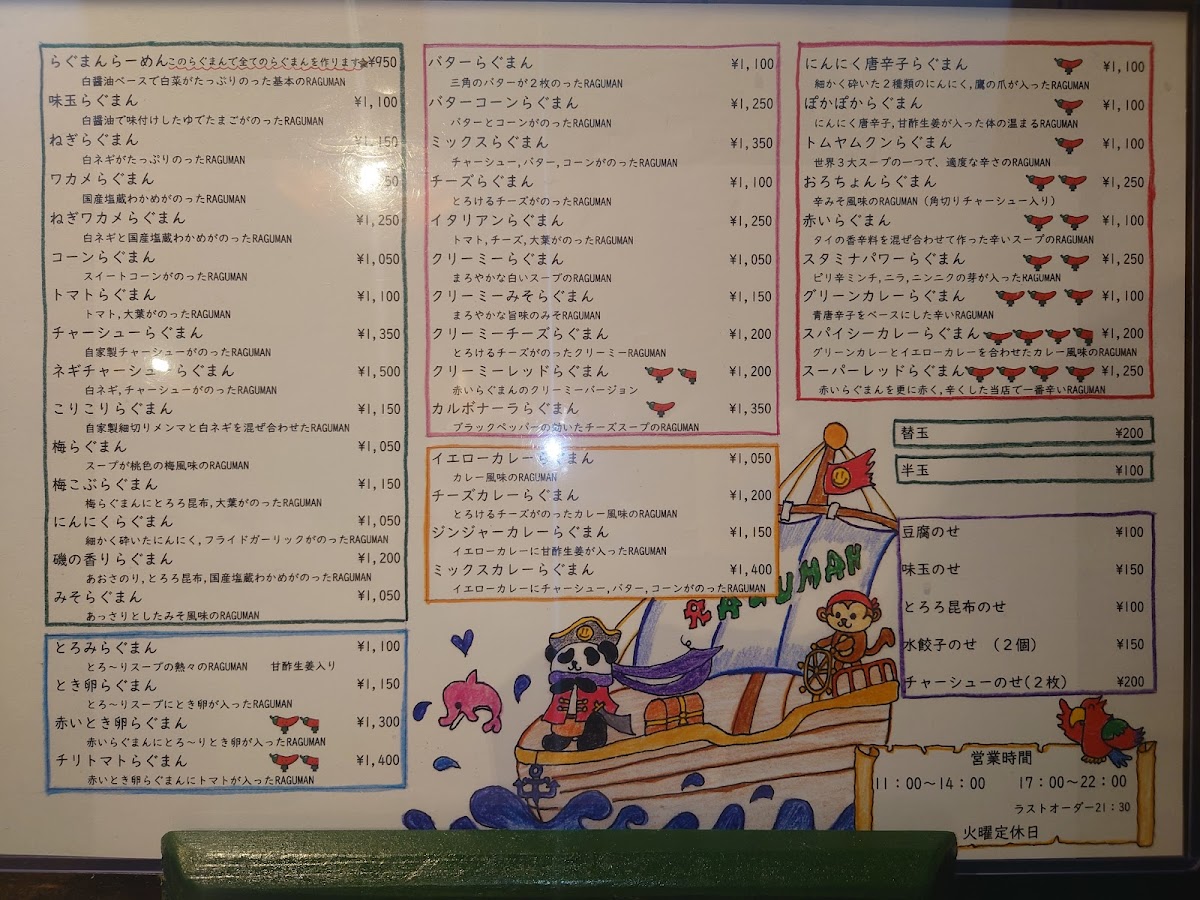 らぐまんらーめん このらぐまんで全てのらぐまんを作ります ¥950
白醤油ベースで白菜がたっぷりのった基本のRAGUMAN
味玉らぐまん ¥1,100
白醤油で味付けしたゆでたまごがのったRAGUMAN
ねぎらぐまん ¥1,150
白ネギがたっぷりのったRAGUMAN
ワカメらぐまん
国産塩蔵わかめがのったRAGUMAN
ねぎワカメらぐまん ¥1,250
白ネギと国産塩蔵わかめがのったRAGUMAN
コーンらぐまん ¥1,050
スイートコーンがのったRAGUMAN
トマトらぐまん ¥1,100
トマト,大葉がのったRAGUMAN
チャーシューらぐまん ¥1,350
自家製チャーシューがのったRAGUMAN
ネギチャーシューらぐまん ¥1,500
白ネギ,チャーシューがのったRAGUMAN
こりこりらぐまん ¥1,150
自家製細切りメンマと白ネギを混ぜ合わせたRAGUMAN
梅らぐまん ¥1,050
スープが桃色の梅風味のRAGUMAN
梅こぶらぐまん ¥1,150
梅らぐまんにとろろ昆布,大葉がのったRAGUMAN
にんにくらぐまん ¥1,050
細かく砕いたにんにく,フライドガーリックがのったRAGUMAN
磯の香りらぐまん ¥1,200
あおさのり,とろろ昆布,国産塩蔵わかめがのったRAGUMAN
みそらぐまん ¥1,050
あっさりとしたみそ風味のRAGUMAN
とろみらぐまん ¥1,100
とろ〜りスープの熱々のRAGUMAN 甘酢生姜入り
とき卵らぐまん ¥1,150
とろ〜りスープにとき卵が入ったRAGUMAN
赤いとき卵らぐまん ¥1,300
赤いらぐまんにとろ〜りとき卵が入ったRAGUMAN
チリトマトらぐまん ¥1,400
赤いとき卵らぐまんにトマトが入ったRAGUMAN
バターらぐまん ¥1,100
三角のバターが2枚のったRAGUMAN
バターコーンらぐまん ¥1,250
バターとコーンがのったRAGUMAN
ミックスらぐまん ¥1,350
チャーシュー,バター,コーンがのったRAGUMAN
チーズらぐまん ¥1,100
とろけるチーズがのったRAGUMAN
イタリアンらぐまん ¥1,250
トマト,チーズ,大葉がのったRAGUMAN
クリーミーらぐまん ¥1,050
まろやかな白いスープのRAGUMAN
クリーミーみそらぐまん ¥1,150
まろやかな旨味のみそRAGUMAN
クリーミーチーズらぐまん ¥1,200
とろけるチーズがのったクリーミーRAGUMAN
クリーミーレッドらぐまん ¥1,200
赤いらぐまんのクリーミーバージョン
カルボナーララぐまん ¥1,350
ブラックペッパーの効いたチーズスープのRAGUMAN
イエローカレーらぐまん ¥1,050
カレー風味のRAGUMAN
チーズカレーらぐまん ¥1,200
とろけるチーズがのったカレー風味のRAGUMAN
ジンジャーカレーらぐまん ¥1,150
イエローカレーに甘酢生姜が入ったRAGUMAN
ミックスカレーらぐまん ¥1,400
イエローカレーにチャーシュー,バター,コーンがのったRAGUMAN
RAGUMAN
にんにく唐辛子らぐまん ¥1,100
細かく砕いた2種類のにんにく,鷹の爪が入ったRAGUMAN
ぽかぽからぐまん ¥1,100
にんにく唐辛子,甘酢生姜が入った体の温まるRAGUMAN
トムヤムクンらぐまん ¥1,100
世界3大スープの一つで、適度な辛さのRAGUMAN
おろちょんらぐまん ¥1,250
辛みそ風味のRAGUMAN（角切りチャーシュー入り）
赤いらぐまん ¥1,100
タイの香辛料を混ぜ合わせて作った辛いスープのRAGUMAN
スタミナパワーらぐまん ¥1,250
ピリ辛ミンチ,ニラ,ニンニクの芽が入ったRAGUMAN
グリーンカレーらぐまん ¥1,100
青唐辛子をベースにした辛いRAGUMAN
スパイシーカレーらぐまん ¥1,200
グリーンカレーとイエローカレーを合わせたカレー風味のRAGUMAN
スーパーレッドらぐまん ¥1,250
赤いらぐまんを更に赤く,辛くした当店で一番辛いRAGUMAN
替玉 ¥200
半玉 ¥100
豆腐のせ ¥100
味玉のせ ¥150
とろろ昆布のせ ¥100
水餃子のせ （2個） ¥150
チャーシューのせ(2枚) ¥200
営業時間
11：00〜14：00 17：00〜22：00
ラストオーダー21：30
火曜定休日